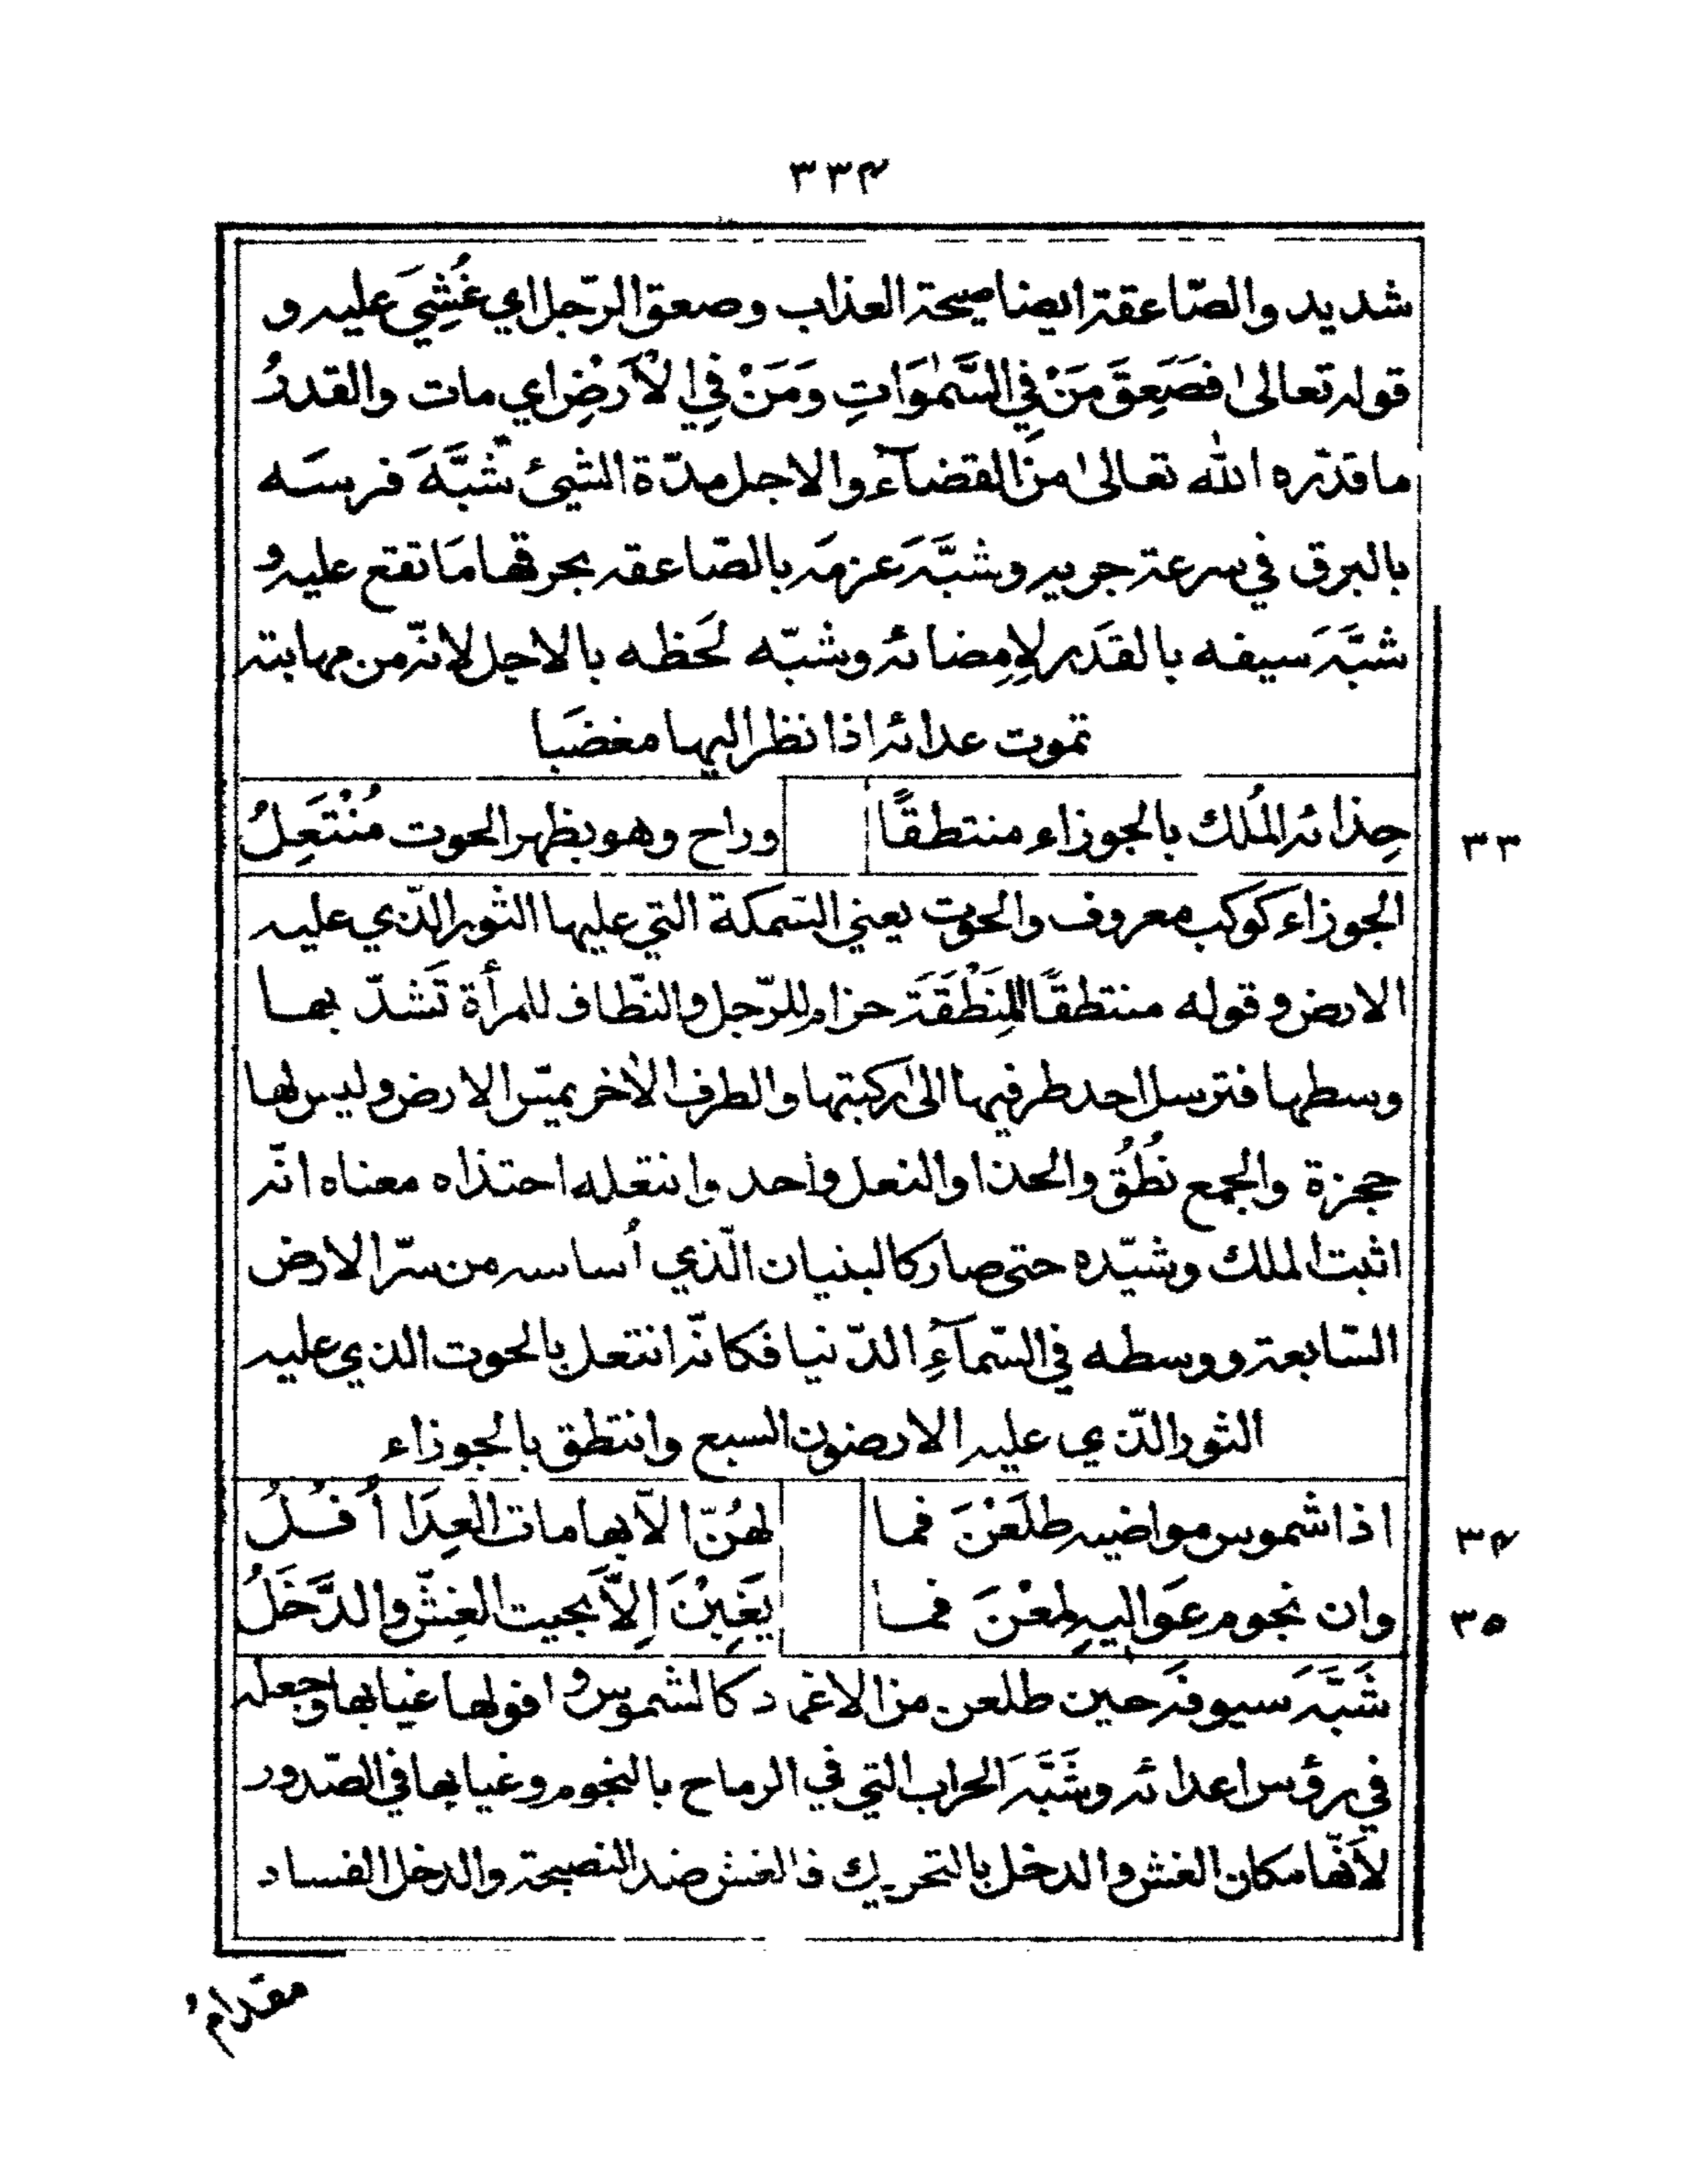 ٣٣٤
شديد والصّاعقة ايضا صيحة العذاب وصعق الرّجل اي غُشِيَ عليه و
قوله تعالىٰ فَصَعِقَ مَنْ فِي السَّمٰوَاتِ وَمَنْ فِي الْاَرْضِ اي مات والقدرُ
ما قدّره الله تعالىٰ من القضآء والاجل مدّة الشيئ شَبَّهَ فرسَه
بالبرق في سرعة جريه وشبَّهَ عزمَه بالصّاعقه بحرقها مَا تقع عليه و
شبَّهَ سيفه بالقَدَر لاِمِضائه وشبّه لَحَظه بالاجل لانّه من مهابته
تموت عدائه اذا نظر اليها مغضَبا
حِذائه المُلك بالجوزاء منتطقًا وراح وهو بظهر الحوت مُنْتَعِلُ
٣٣
الجوزاء كَوكب معروف والحوت يعني السّمكة التي عليها الثور الذّي عليه
الارض و قوله منتطقًا المِنَطْقَة حزام للرّجل والنّطاف للمرأة تَشدّ بها
وسطها فترسل احد طرفيها الىٰ ركبتها والطرف الاٰخر يمسّ الارض وليس لها
حجزة والجمع نُطُق والحذا والنعل واحد وانتعله احتذاه معناه انّه
اثبت الملك وشيّده حتى صار كالبنيان الّذي أساسه من سرّ الارض
السّابعة ووسطه في السّمآءِ الدّنيا فكانّه انتعل بالحوت الذي عليه
الثور الذّي عليه الارضون السبع وانتطق بالجوزاء
اذا شموس مواضيه طلَعْنَ فما لهُنّ الاّ بهامات الْعِدَا أُفُلُ
٣٤
وان نجوم عَواليهِ لمعْنَ فما يَغِبْنَ اِلاَّ بحيت الغِشّ والدَّخَلُ
٣٥
شَبَّهَ سيوفَه حين طلعن من الاغماد كالشموس و افولها غيابها وجعله
في رؤس اعدائه وشَبَّهَ الحراب التي في الرماح بالنجوم وغيابها في الصّدور
لأنّها مكان الغش والدخل بالتحريك فالغش ضد النصيحة والدخل الفساد
مقدامُ